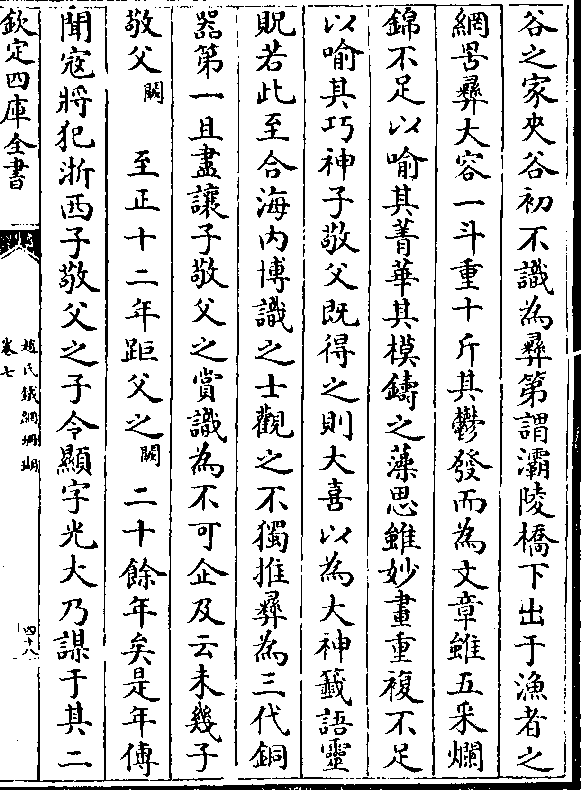 谷之家央谷初不識為彛第謂灞陵橋下出于漁者之
網罟彛大容一斗重十斤其鬱發而為文章雖五采爛
錦不足以喻其菁華其模鑄之藻思雖妙畫重複不足
以喻其巧神子敬父既得之則大喜以為大神籤語靈
貺若此至合海内博識之士觀之不獨推彛為三代銅
器第一且盡讓子敬父之賞識為不可企及云未幾子
敬父闕 至正十二年距父之闕 二十餘年矣是年傳
聞寇將犯浙西子敬父之子令顯字光大乃謀于其二
欽定四庫全書
趙氏鐵網珊瑚
卷七
四十八